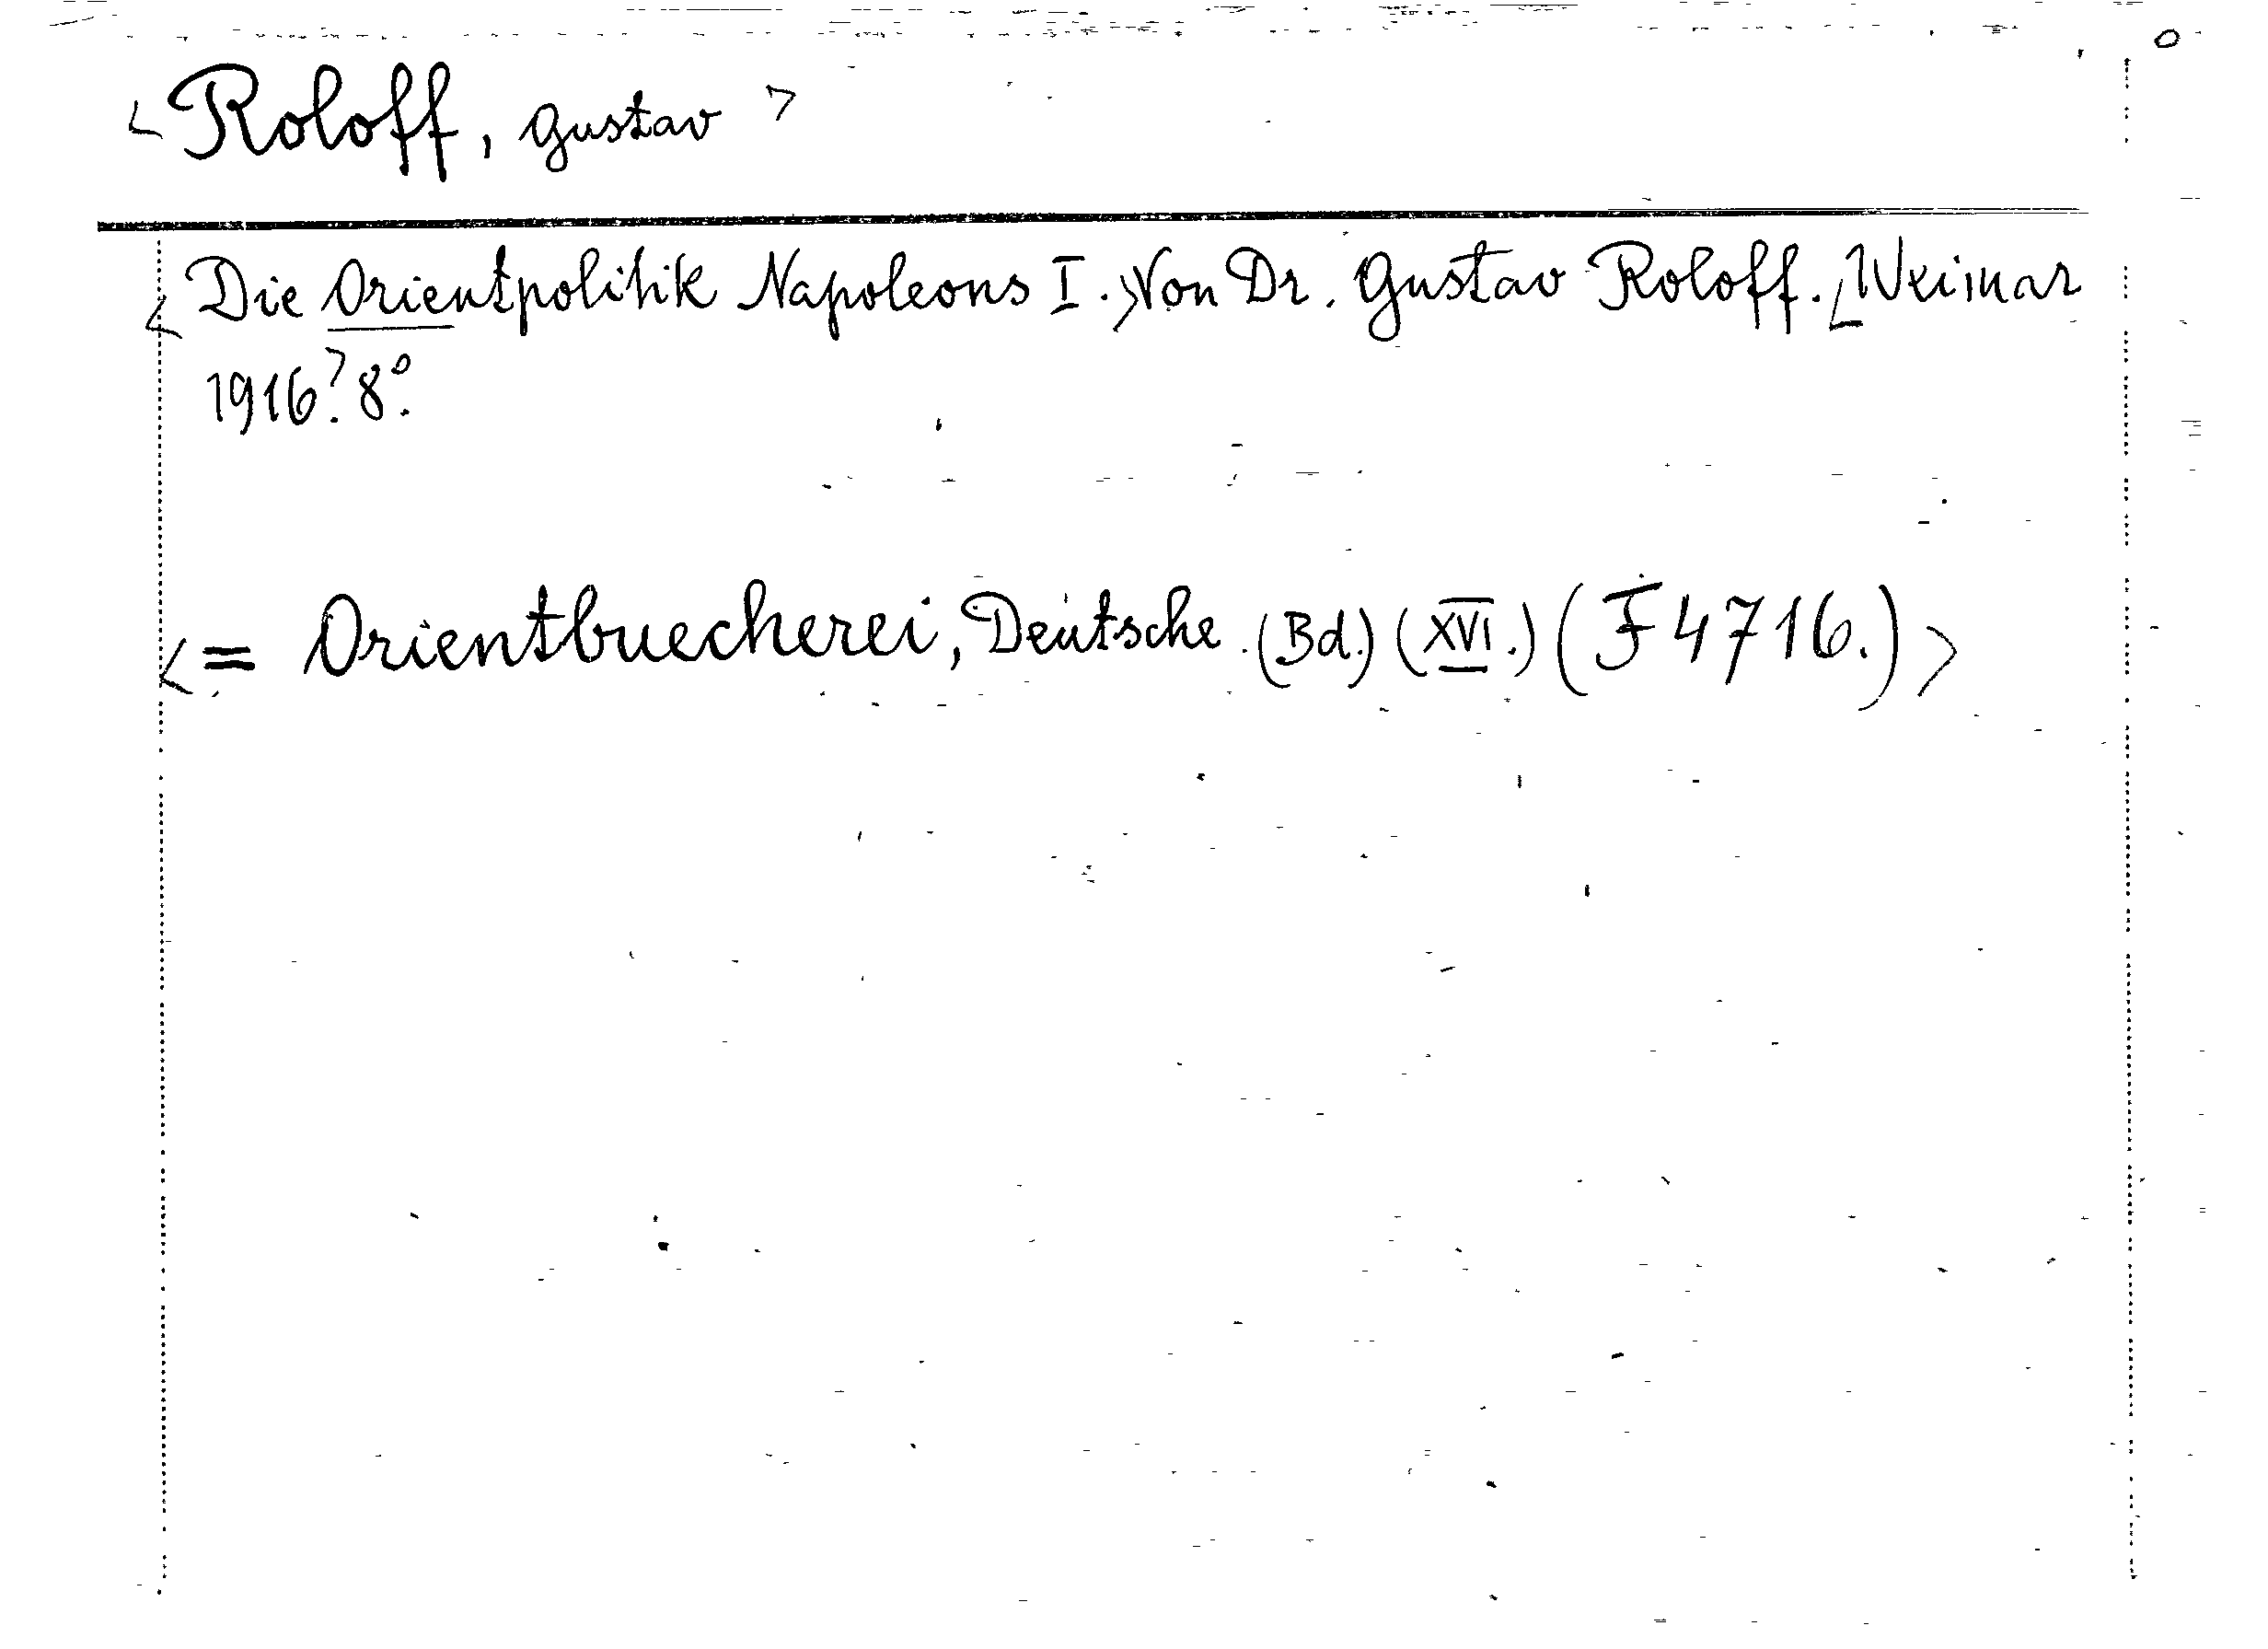 <Roloff, Gustav>
<Die Orientpolitik Napoleons I.>Von Dr. Gustav Roloff.<Weimar
1916.>8°.
<= Orientbuecherei, Deutsche. (Bd.) (XVI.) (F 4716.)>